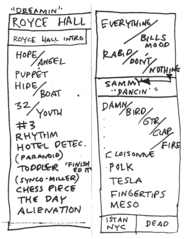 "DREAMIN"
ROYCE HALL
ROYCE HALL INTRO
HOPE/ANGEL
PUPPET
HIDE/BOAT
'32/YOUTH
#3
RHYTHM
HOTEL DETEC.
(PARANOID)
TODDLER "FINISH ED IT"
(SYNCO-MILLER)
CHESS PIECE
THE DAY
ALIENATION
EVERYTHING/BILLS MOOD
RABID/DONT/NOTHING
SAMMY
"DANCIN'"
DAMN/BIRD/GTR/CLAP/FIRE
CLOISONNE
POLK
TESLA
FINGERTIPS
MESO
ISTAN NYC
DEAD